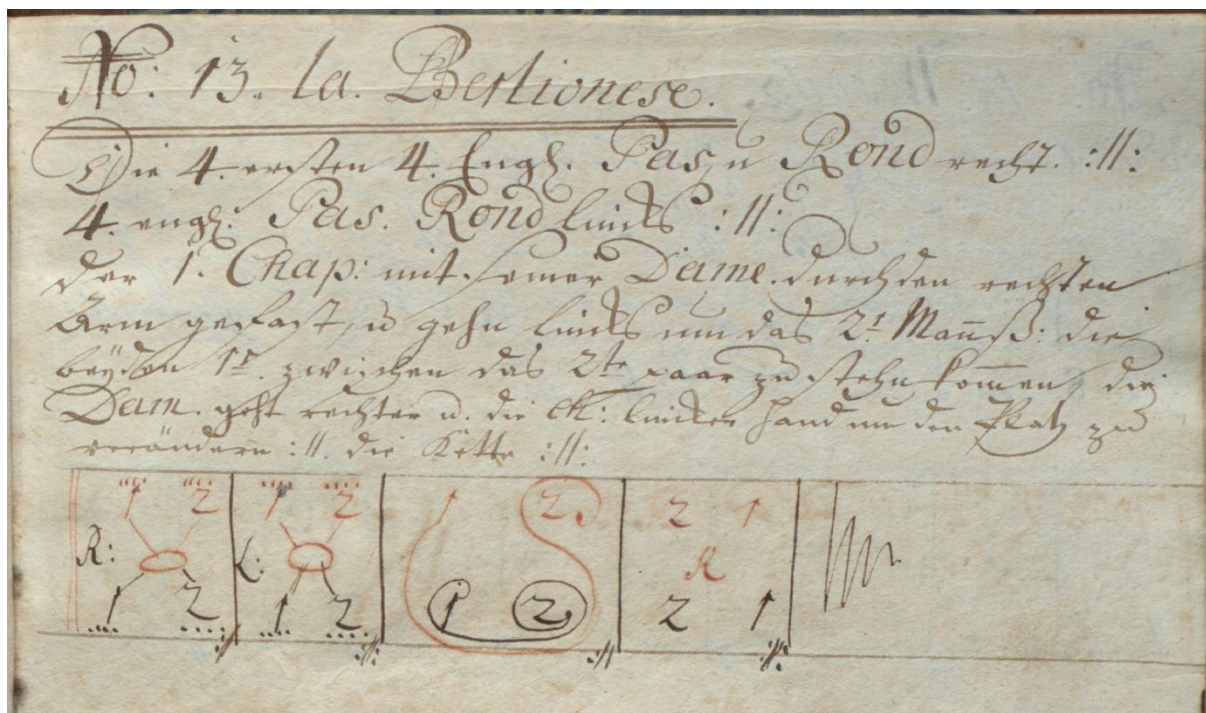 No: 13. la. Berlionese.
Die 4. ersten 4. Engl. Pas, u Rond recht. :||:
4. engl: Pas. Rond links :||:
der 1. Chap: mit seiner Dame. durch den rechten
Arm gefast, u gehn links um das 2t. die
beyden 1r. zwischen das 2te paar zu stehn kommen, die
Dam. geht rechter u. die linker Hand um den Platz zu
verändern :||. die Kette :||:
1 2 1 2 1 2 2 1
R: L: R
1 2 1 2 1 2 2 1
:||: :||: :|| :||: